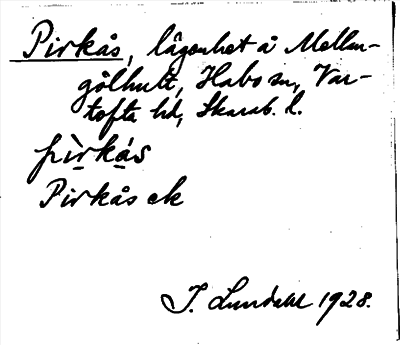 Pirkås, lägenhet å Mellan-
gölhult, Habo sn, Var-
tofta hd, Skarab. l.
pìrkás
Pirkås ek
I. Lundahl 1928.